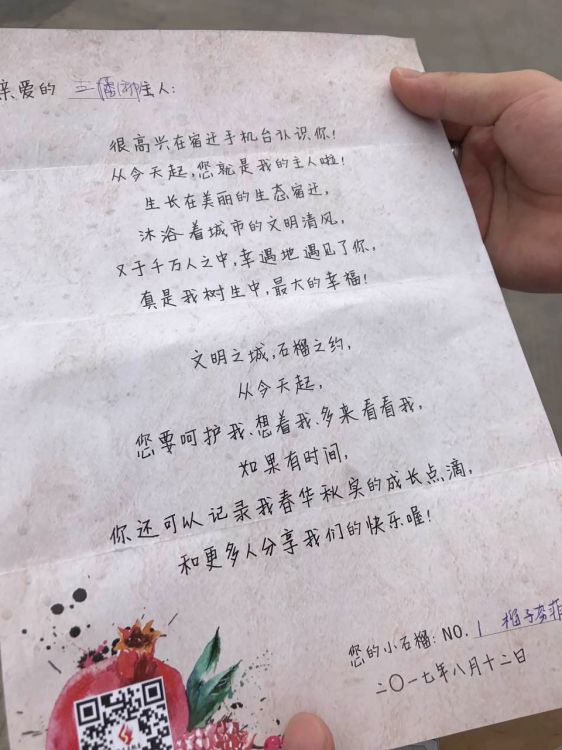 亲爱的 主人:
很高兴在宿迁手机台认识你!
从今天起,您就是我的主人啦!
生长在美丽的生态宿迁,
沐浴着城市的文明清风,
又于千万人之中,幸遇地遇见了你,
真是我树生中,最大的幸福!
文明之城,石榴之约,
从今天起,
您要呵护我、想着我、多来看看我,
如果有时间,
你还可以记录我春华秋实的成长点滴,
和更多人分享我们的快乐喔!
您的小石榴: NO. 1
二〇一七年八月十二日